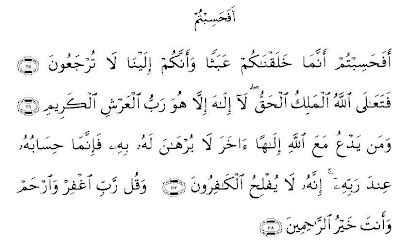 أَفَحَسِبْتُمْ
أَفَحَسِبْتُمْ أَنَّمَا خَلَقْنَٰكُمْ عَبَثًا وَأَنَّكُمْ إِلَيْنَا لَا تُرْجَعُونَ ۝١١٥
فَتَعَٰلَى ٱللَّهُ ٱلْمَلِكُ ٱلْحَقُّ ۖ لَآ إِلَٰهَ إِلَّا هُوَ رَبُّ ٱلْعَرْشِ ٱلْكَرِيمِ ۝١١٦
وَمَن يَدْعُ مَعَ ٱللَّهِ إِلَٰهًا ءَاخَرَ لَا بُرْهَٰنَ لَهُۥ بِهِۦ فَإِنَّمَا حِسَابُهُۥ
عِندَ رَبِّهِۦٓ ۚ إِنَّهُۥ لَا يُفْلِحُ ٱلْكَٰفِرُونَ ۝١١٧ وَقُل رَّبِّ ٱغْفِرْ وَٱرْحَمْ
وَأَنتَ خَيْرُ ٱلرَّٰحِمِينَ ۝١١٨